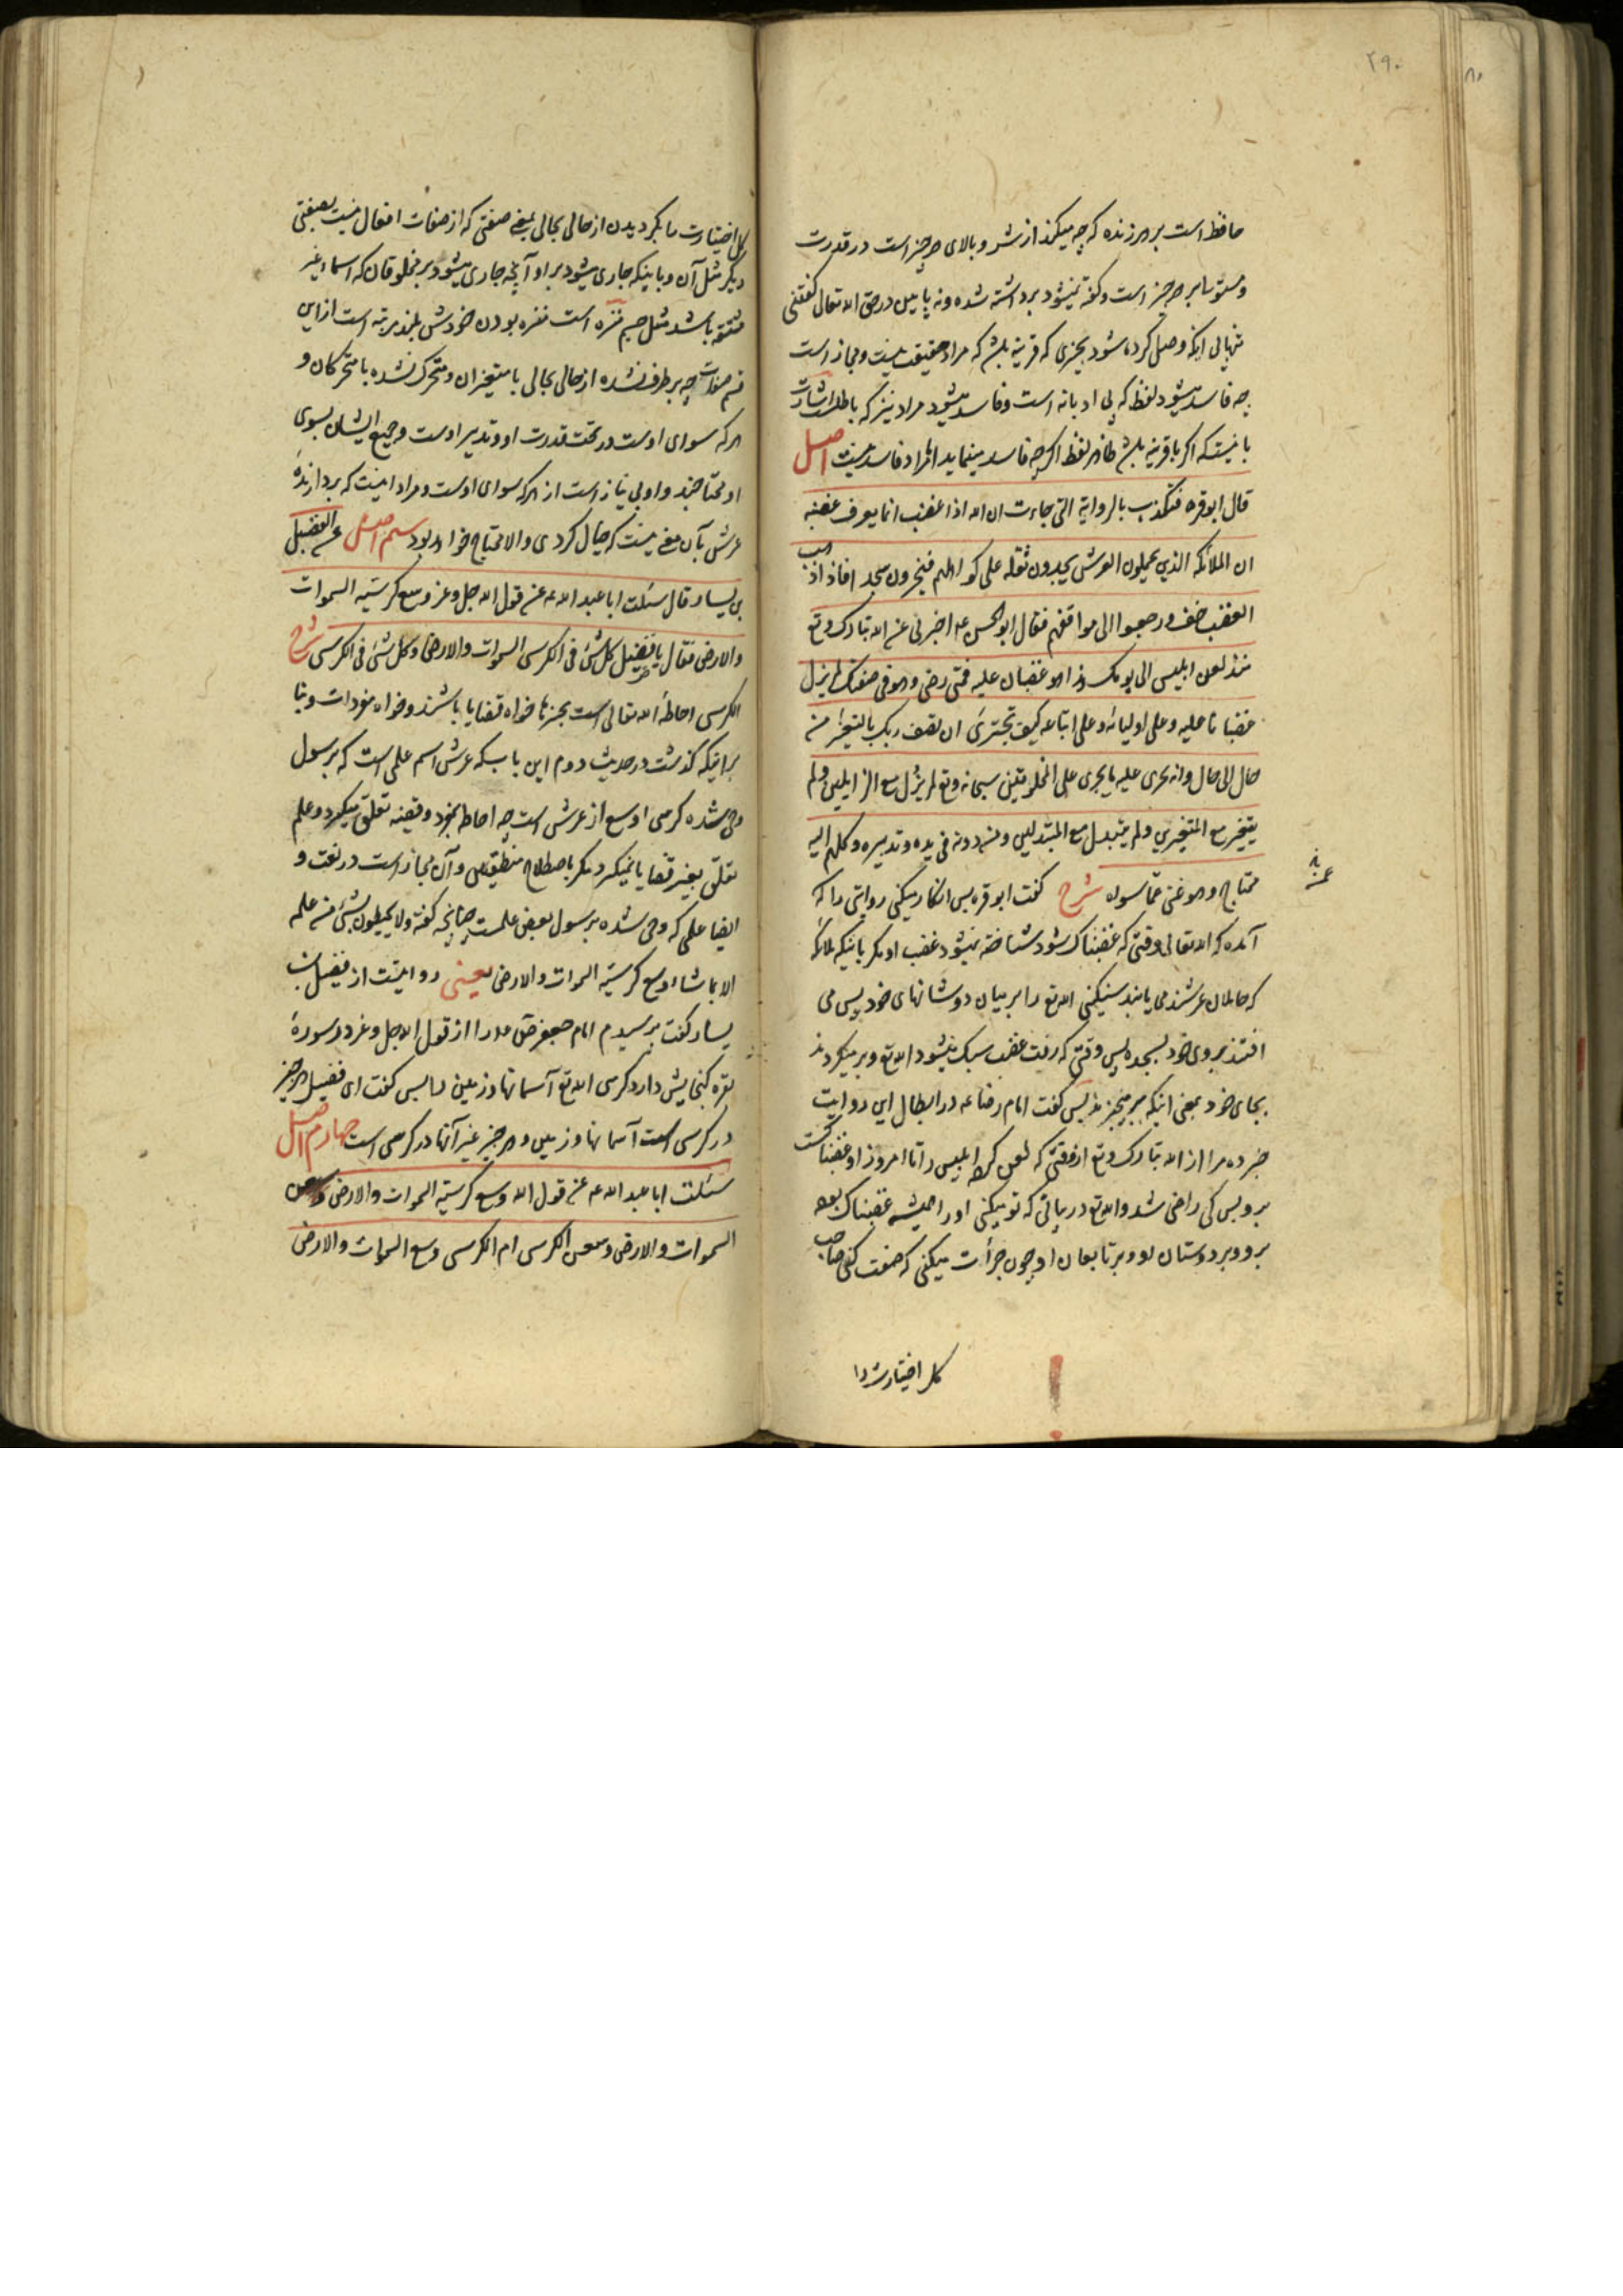 ۲۹۰
حافظ است بر هر زنده که چه میکند از شر و بالای هر چیز است در قدرت
و مستوسا بر هر چیز است و گفته نمیشود برداشته شده و نه پایین در حق الله تعالی گفتنی
تنهایی اینکه وصل کرده شود بچیزی که قرینه باشد که مراد حقیقت نیست و مجاز است
چه فاسد میشود لفظ که بی ادبانه است و فاسد میشود مراد نیز که باطلست اشارت
باینست که اگر با قرینه باشد ظاهر لفظ اگرچه فاسد مینماید اما مراد فاسد نیست اصل
قال ابو قره فتکذب بالروایة التی جاءت ان الله اذا غضب انما یعرف غضبه
ان الملائکه الذین یحملون العرش یجدون ثقله علی کواهلهم فیخرون سجدا فاذا ذهب
الغضب خف و رجعوا الی مواقفهم فقال ابو الحسن عه اخبرنی عن الله تبارک و تع
منذ لعن ابلیس الی یومک هذا هو غضبان علیه فمتی رضی و هو فی صفتک لم یزل
غضبانا علیه و علی اولیائه و علی اتباعه کیف تجتری ان تصف ربک بالتغیر من
حال الی حال و انه یجری علیه ما یجری علی المخلوقین سبحانه و تع لم یزل مع الزایلین و لم
یتغیر مع المتغیرین و لم یتبدل مع المتبدلین و من دونه فی یده و تدبیره و کلهم الیه
محتاج و هو غنی عمن سواه شرح گفت ابو قره پس انکار میکنی روایتی را که
آمده که الله تعالی وقتی که غضبناک شود شناخته نمیشود غضب او مگر باینکه ملائکه
که حاملان عرشند می یابند سنگینی الله تع را بر میان دوشانهای خود پس می
افتند بروی خود بسجده پس وقتی که رفت غضب سبک میشود الله تع و بر میگردند
بجای خود بمعنی اینکه بر میخیزند پس گفت امام رضا عه در ابطال این روایت
خبر ده مرا از الله تبارک و تع از وقتی که لعن کرد ابلیس را تا امروز او غضبناکست
برو پس کی راضی شد و الله تع در بیانی که تو میکنی او را همیشه غضبناک بوده
برو و بر دوستان او و بر تابعان او چون جرأت میکنی که صفت کنی صاحب
کل اختیارت را
کل اختیارت را بگردیدن از حالی بحالی بمعنی صفتی که از صفات افعال نیست بصفتی
دیگر مثل آن و باینکه جاری میشود بر او آنچه جاری میشود بر مخلوقان که اسماء غیر
مشتقه باشد مثل جسم منزه است منزه بودن خودش بلند مرتبه است از این
قسم صفات چه بر طرف نشده از حالی بحالی با متغیران و متحرک نشده با متحرکان و
هر که سوای اوست در تحت قدرت او و تدبیر اوست و جمیع ایشان بسوی
او محتاجند و او بی نیاز است از هر که سوای اوست و مراد اینست که بردارندهٔ
عرش بآن معنی نیست که خیال کردی والا محتاج خواهد بود سیم اصل عن الفضیل
بن یسار قال سئلت ابا عبد الله عه عن قول الله جل و عز وسع کرسیه السموات
والارض فقال یا فضیل کل شئ فی الکرسی السموات والارض و کل شئ فی الکرسی شرح
الکرسی احاطهٔ الله تعالی است بچیزها خواه قضایا باشند و خواه مفردات و بنا
بر اینکه گذشت در حدیث دوم این باب که عرش اسم علمی است که بر رسول
وحی شده کرسی اوسع از عرش است چه احاطه بمفرد و قضیه تعلق میگیرد و علم
تعلق بغیر قضایا نمیگیرد مگر باصطلاح منطقیین و آن مجاز است در لغت و
ایضا علمی که وحی شده بر رسول بعض علمست چنانچه گفته ولا یحیطون بشئ من علمه
الا بما شاء وسع کرسیه السموات والارض یعنی روایتست از فضیل بن
یسار گفت پرسیدم امام جعفر صادق عه را از قول الله جل و عز در سورهٔ
بقره گنجایش دارد کرسی الله تع آسمانها و زمین را پس گفت ای فضیل هر چیز
در کرسی است آسمانها و زمین و هر چیز غیر آنها در کرسی است چهارم اصل
سئلت ابا عبد الله عه عن قول الله وسع کرسیه السموات والارض وسعن
السموات والارض وسعن الکرسی ام الکرسی وسع السموات والارض